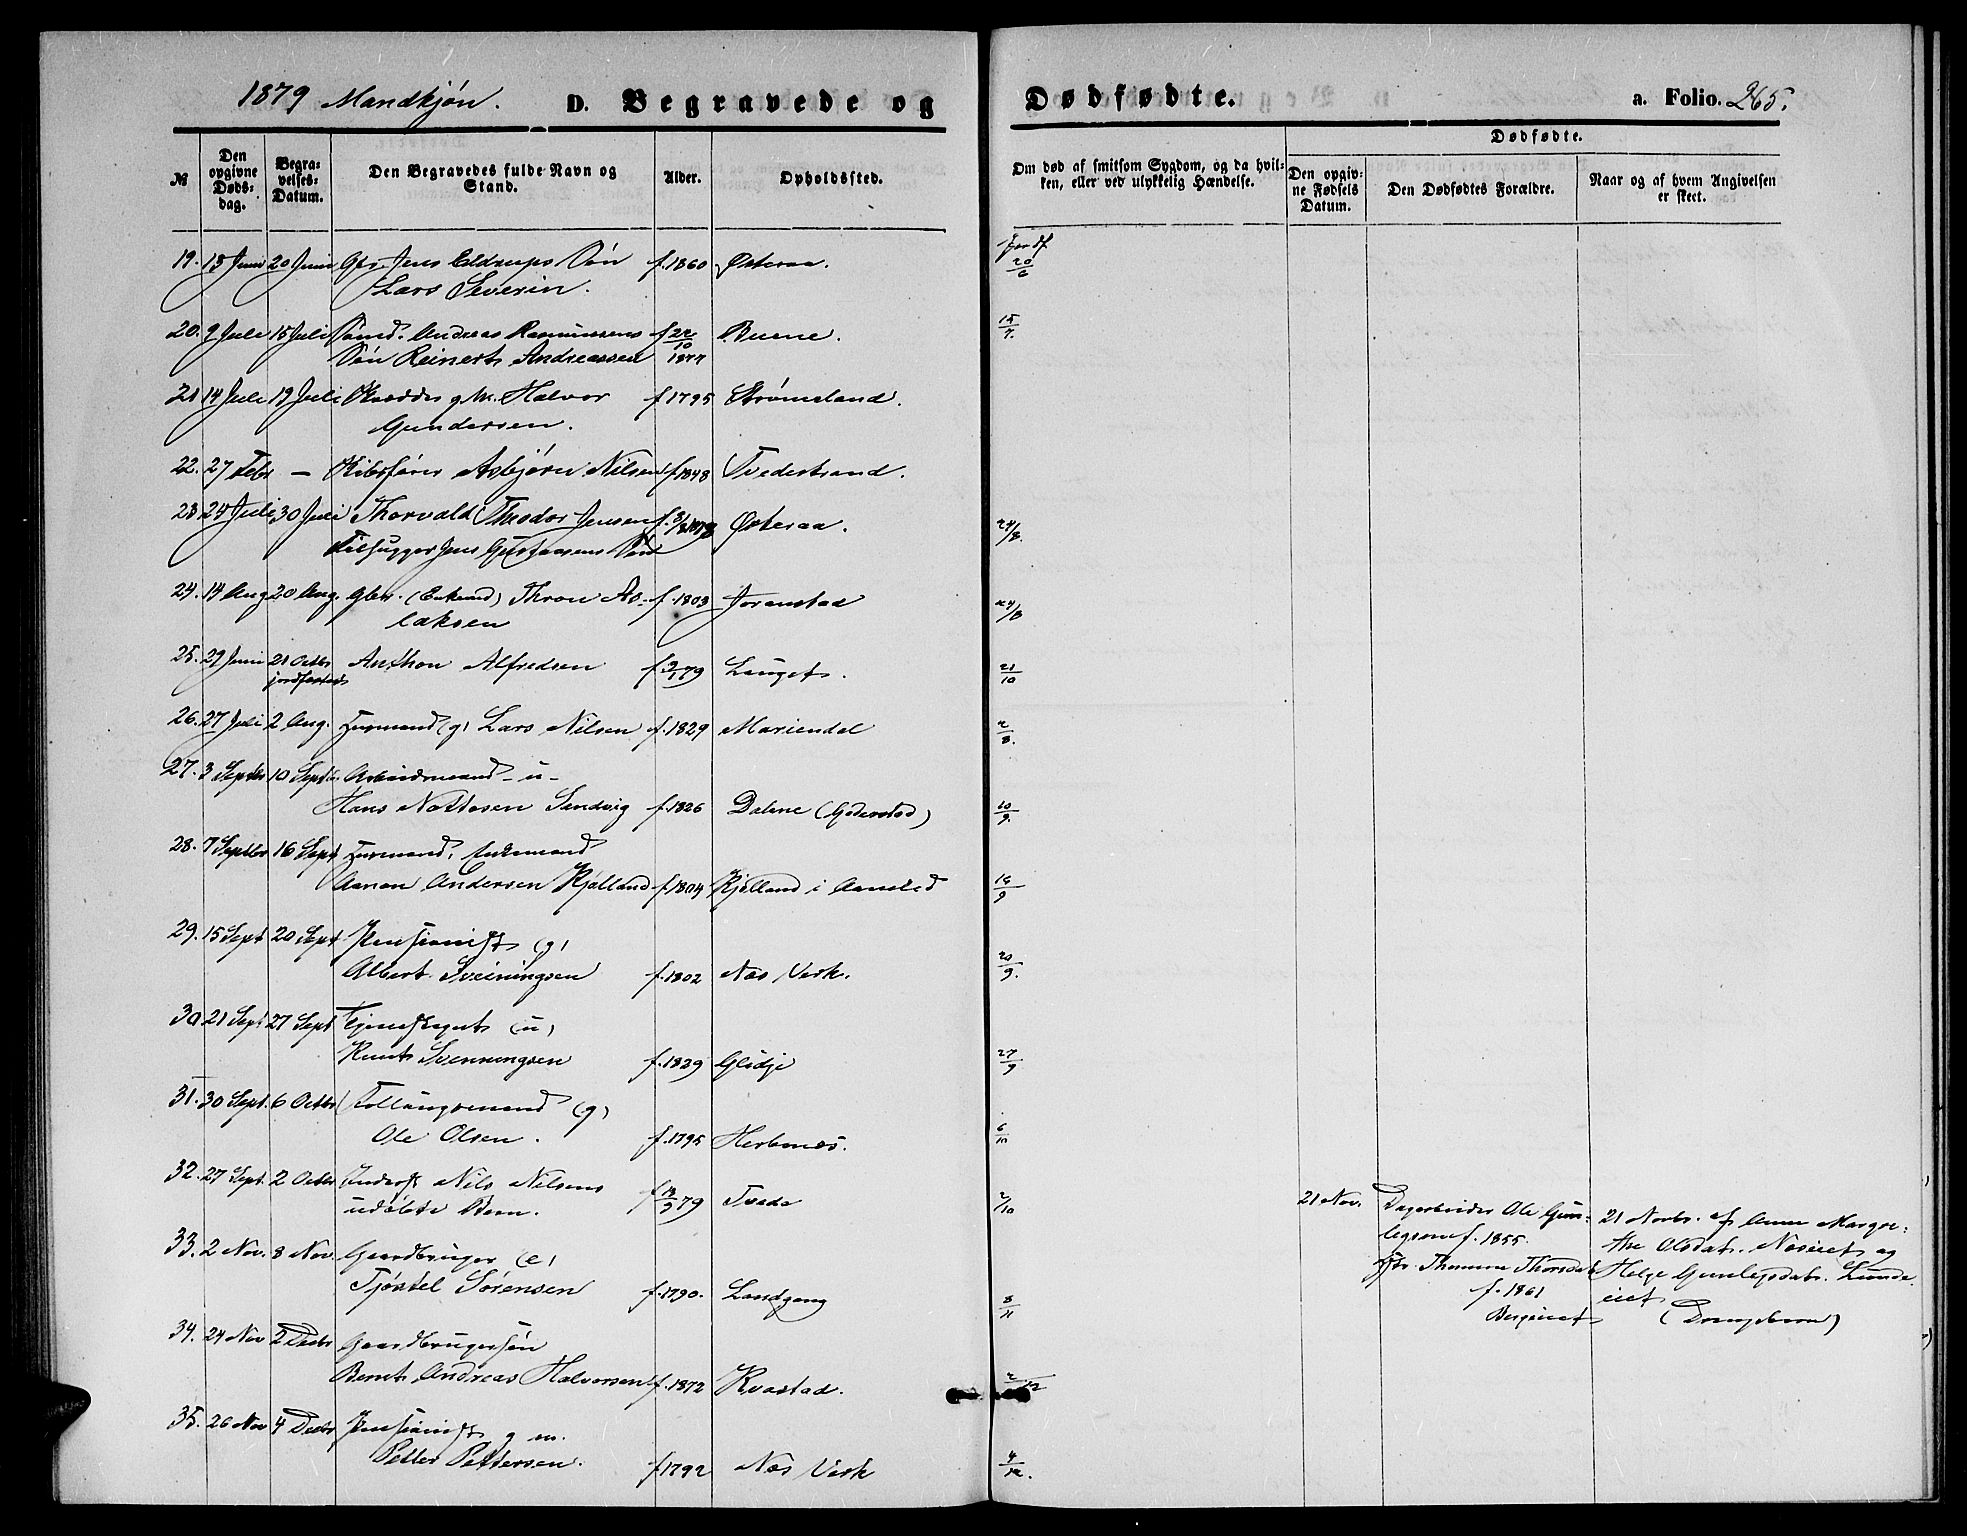 1879 Mandkjøn. D. Begravede og
Dødfødte. a. Folio. 265.
№
Den opgivne Døds-dag.
Begra-velses-Datum.
Den Begravedes fulde Navn og Stand.
Alder.
Opholdssted.
Om død af smitsom Sygdom, og da hvil-
ken, eller ved ulykkelig Hændelse.
Dødfødte.
Den opgiv-ne Fødsels Datum.
Den Dødfødtes Forældre.
Naar og af hvem Angivelsen er skeet.
19. 13 Juni 20 Juni Gbr. Jens Eldrups Søn f. 1860 Østeraa. Jordf. 20/6
Lars Severin.
20. 9 Juli 15 Juli Andreas Rasmussens f 22/10 1877 Buene. 15/7.
Søn Reinert Andreassen
21 14 Juli 19 Juli Halvor f 1795 Strømeland.
Gundersen.
22. 27 Febr — Asbjørn Nilsen f 1848 Tvedestrand.
23 24 Juli 30 Juli Thorvald Theodor Jensen Østeraa. 24/8.
Jens Gustavsens Søn
24. 14 Aug 20 Aug. Gbr. (Enkemd) Thron As- f. 1803 Joranstad 24/8
laksen
25. 29 Juni 21 Octbr Anthon Alfredsen Lauget. 21/10
jordfæstet
26. 27 Juli 2 Aug. Husmand (g) Lars Nilsen f. 1829 Mariendal 2/8.
27. 3 Septbr 10 Septbr. Arbeidsmand - u -
Hans Nottosen Sandvig f. 1826 Dalene (Goderstad) 10/9.
28. 7 Septbr 16 Sept Husmand, Enkemand
Aanon Andersen Kjelland f. 1804 Kjelland i Aamlid 16/9
29. 15 Sept 20 Sept Pensionist (g)
Albert Sveiningsen f. 1802 Næs Verk. 20/9.
30 21 Sept 27 Sept Tjenestegut (u)
Knut Svenningsen f. 1829 Glidje 27/9
31. 30 Sept. 6 Octbr Follaugsmand (g)
Ole Olsen. f. 1795 Herbenæs. 6/10
32. 27 Sept. 2 Octbr Inderst Nils Nilsens
udøbte Barn. f 79 Tvede 2/10
21 Nov. Dagarbeider Ole Gun-
legsen f. 1855.
Thomine Thorsdat
f. 1861
Bergeiet
21 Novbr. af Anne Margre-
the Olsdat. Næseiet og
Helge Gunlegsdatr. Lunde
eiet
(Drengebarn)
33. 2 Nov. 8 Nov. Gaardbruger (e)
Tjøstel Sørensen f. 1790. Landgang 8/11
34. 24 Nov 2 Decbr Gaardbrugersøn
Bernt Andreas Halvorsen f. 1872 Kvastad. 2/12
35. 26 Nov 4 Decbr Pensionist g m.
Petter Pettersen. f. 1792 Næs Verk 4/12.